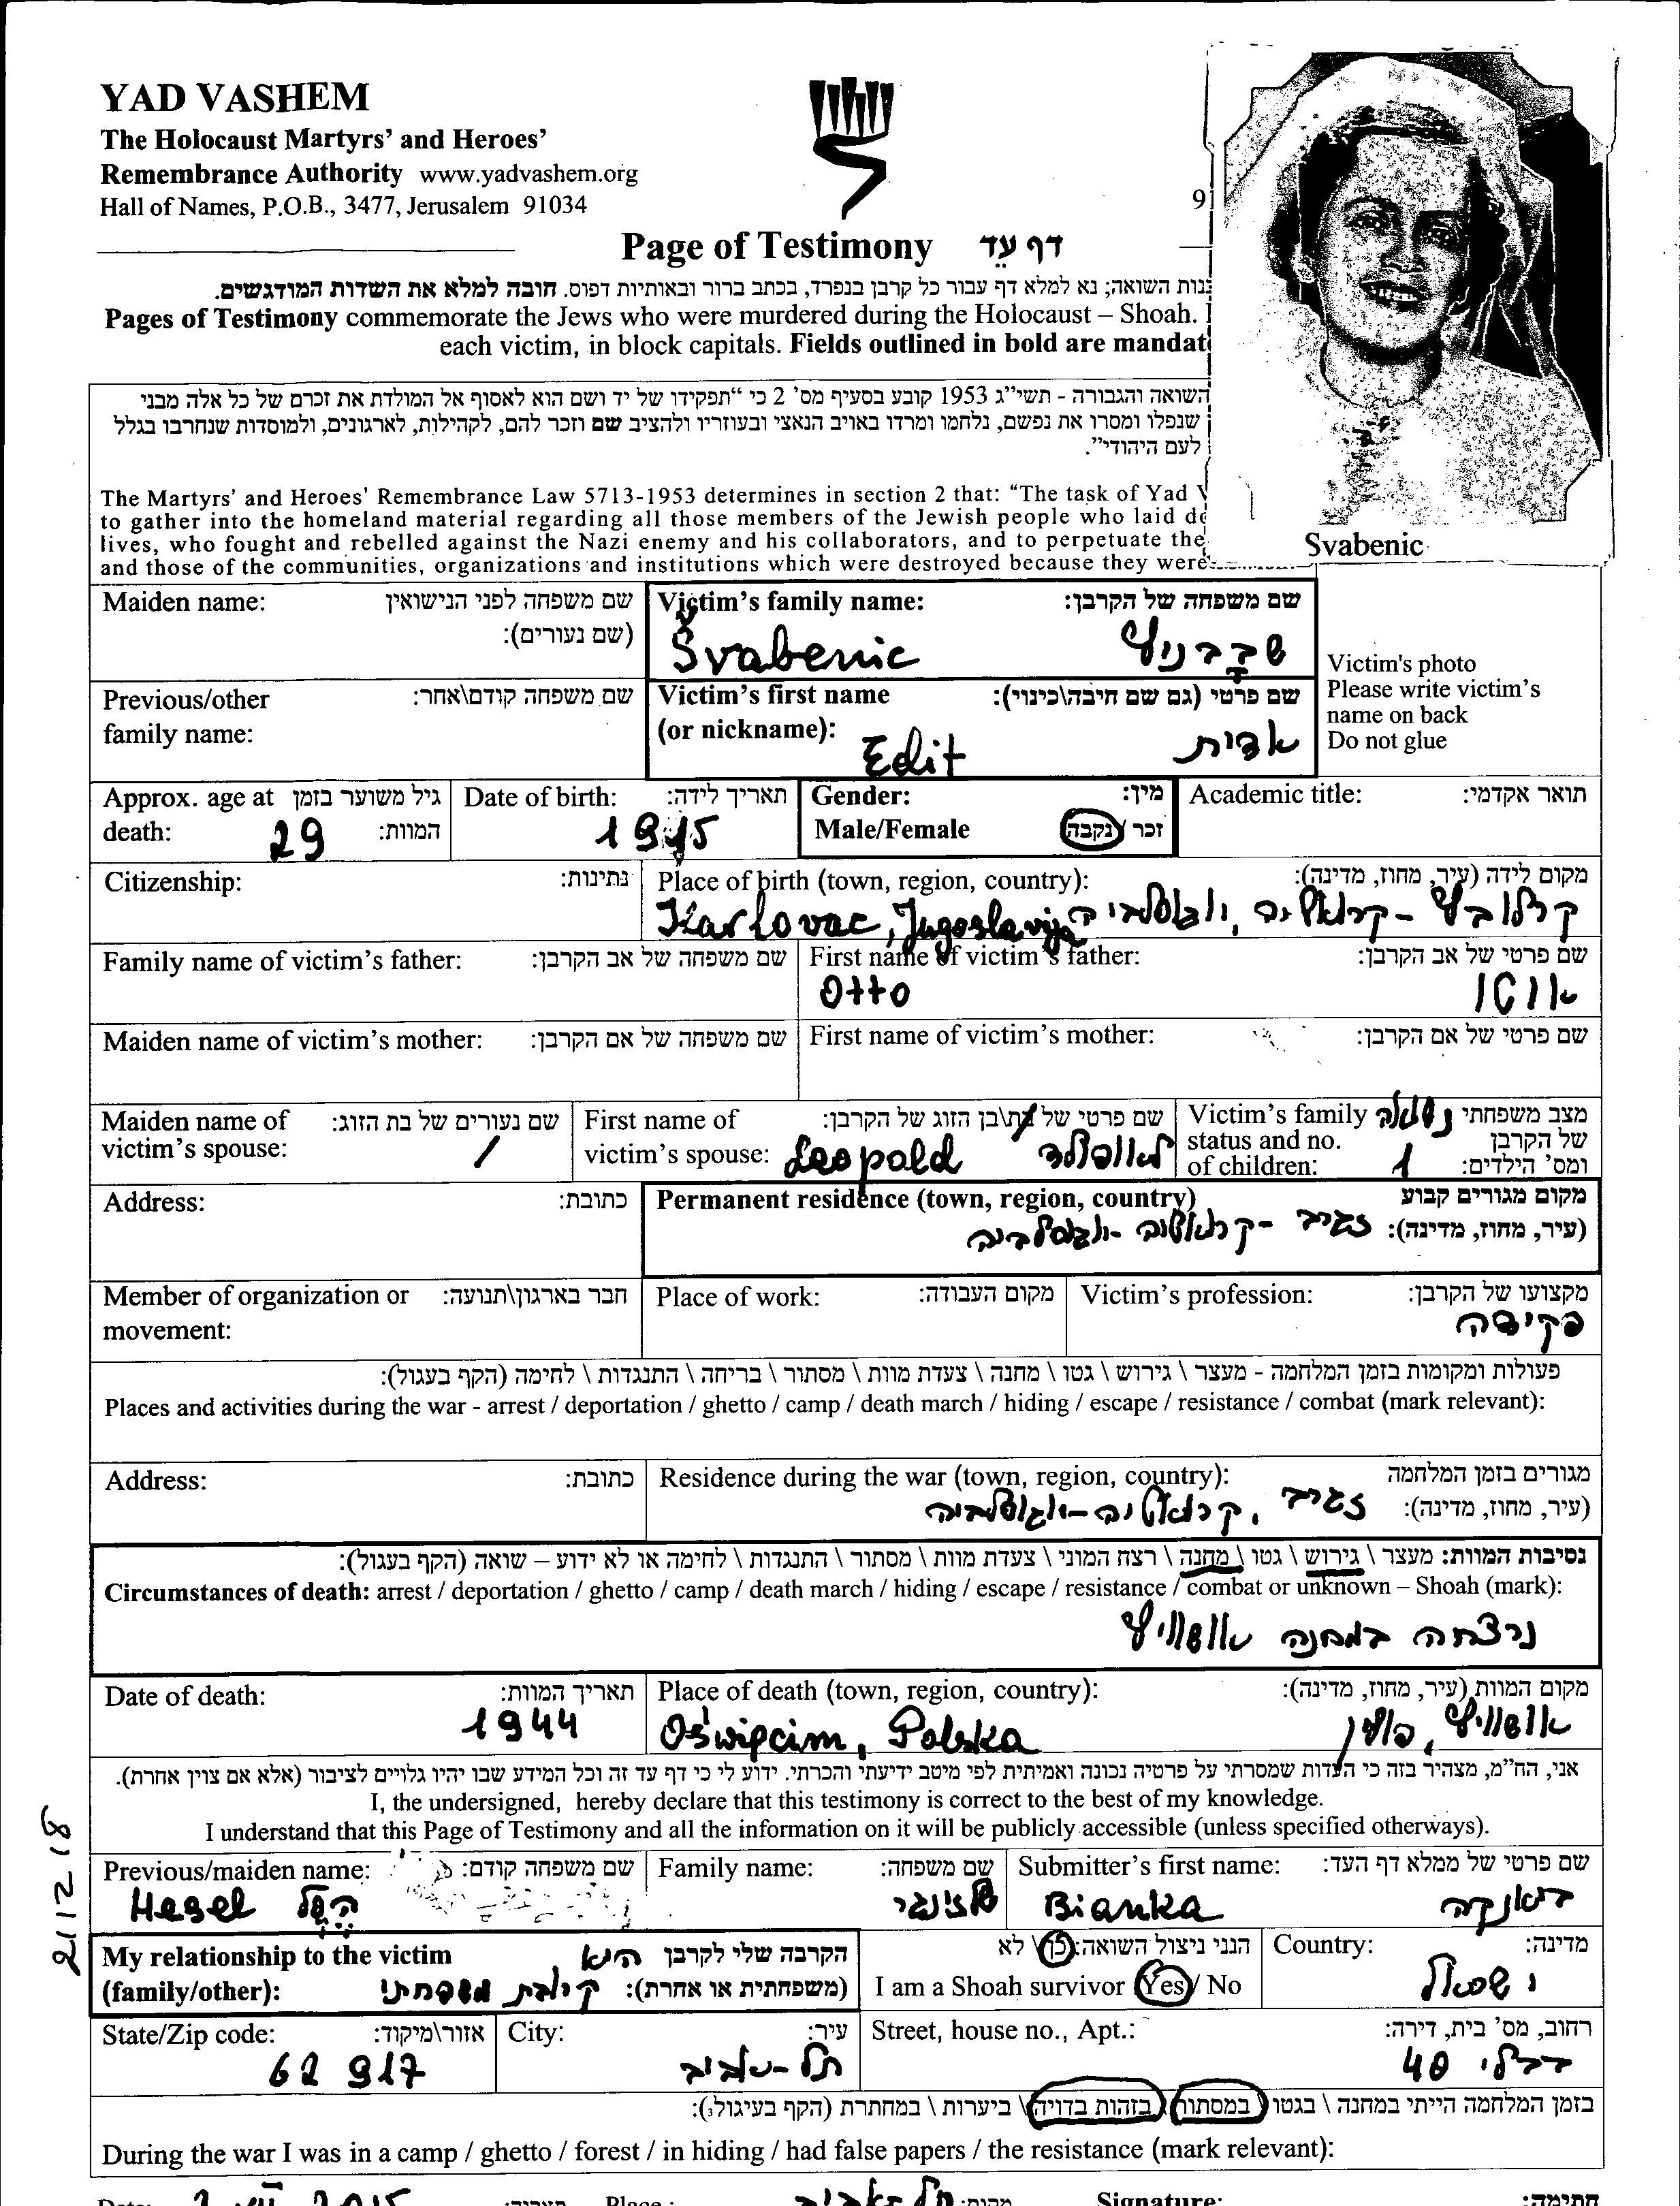 YAD VASHEM
The Holocaust Martyrs' and Heroes'
Remembrance Authority www.yadvashem.org
Hall of Names, P.O.B., 3477, Jerusalem 91034
9
Page of Testimony דף עֵד
נות השואה; נא למלא דף עבור כל קרבן בנפרד, בכתב ברור ובאותיות דפוס. חובה למלא את השדות המודגשים.
Pages of Testimony commemorate the Jews who were murdered during the Holocaust – Shoah.
each victim, in block capitals. Fields outlined in bold are mandat
השואה והגבורה - תשי"ג 1953 קובע בסעיף מס' 2 כי "תפקידו של יד ושם הוא לאסוף אל המולדת את זכרם של כל אלה מבני
שנפלו ומסרו את נפשם, נלחמו ומרדו באויב הנאצי ובעוזריו ולהציב שם וזכר להם, לקהילות, לארגונים, ולמוסדות שנחרבו בגלל
לעם היהודי".
The Martyrs' and Heroes' Remembrance Law 5713-1953 determines in section 2 that: "The task of Yad V
to gather into the homeland material regarding all those members of the Jewish people who laid do
lives, who fought and rebelled against the Nazi enemy and his collaborators, and to perpetuate the
and those of the communities, organizations and institutions which were destroyed because they were
Svabenic
Maiden name: שם משפחה לפני הנישואין
(שם נעורים):
Victim's family name: שם משפחה של הקרבן:
Švabenic שבבניץ
Victim's photo
Please write victim's
name on back
Do not glue
Previous/other שם משפחה קודם\אחר:
family name:
Victim's first name שם פרטי (גם שם חיבה\כינוי):
(or nickname):
Edit אדית
Approx. age at גיל משוער בזמן
death: 29 המוות:
Date of birth: תאריך לידה:
1915
Gender: מין:
Male/Female זכר / נקבה
Academic title: תואר אקדמי:
Citizenship: נתינות:
Place of birth (town, region, country): מקום לידה (עיר, מחוז, מדינה):
Karlovac, Jugoslavija קרלובץ - קרואטיה, יוגוסלביה
Family name of victim's father: שם משפחה של אב הקרבן:
First name of victim's father: שם פרטי של אב הקרבן:
Otto אוטו
Maiden name of victim's mother: שם משפחה של אם הקרבן:
First name of victim's mother: שם פרטי של אם הקרבן:
Maiden name of שם נעורים של בת הזוג:
victim's spouse: /
First name of שם פרטי של בת\בן הזוג של הקרבן:
victim's spouse: Leopold לאופולד
Victim's family נשואה מצב משפחתי
status and no. של הקרבן
of children: 1 ומס' הילדים:
Address: כתובת:
Permanent residence (town, region, country) מקום מגורים קבוע
(עיר, מחוז, מדינה): זגרב - קרואטיה - יוגוסלביה
Member of organization or חבר בארגון\תנועה:
movement:
Place of work: מקום העבודה:
Victim's profession: מקצועו של הקרבן:
פקידה
פעולות ומקומות בזמן המלחמה - מעצר \ גירוש \ גטו \ מחנה \ צעדת מוות \ מסתור \ בריחה \ התנגדות \ לחימה (הקף בעגול):
Places and activities during the war - arrest / deportation / ghetto / camp / death march / hiding / escape / resistance / combat (mark relevant):
Address: כתובת:
Residence during the war (town, region, country): מגורים בזמן המלחמה
(עיר, מחוז, מדינה): זגרב, קרואטיה - יוגוסלביה
נסיבות המוות: מעצר \ גירוש \ גטו \ מחנה \ רצח המוני \ צעדת מוות \ מסתור \ התנגדות \ לחימה או לא ידוע – שואה (הקף בעגול):
Circumstances of death: arrest / deportation / ghetto / camp / death march / hiding / escape / resistance / combat or unknown – Shoah (mark):
נרצחה במחנה אושוויץ
Date of death: תאריך המוות:
1944
Place of death (town, region, country): מקום המוות (עיר, מחוז, מדינה):
Oświęcim, Polska אושוויץ, פולין
אני, הח"מ, מצהיר בזה כי העדות שמסרתי על פרטיה נכונה ואמיתית לפי מיטב ידיעתי והכרתי. ידוע לי כי דף עד זה וכל המידע שבו יהיו גלויים לציבור (אלא אם צוין אחרת).
I, the undersigned, hereby declare that this testimony is correct to the best of my knowledge.
I understand that this Page of Testimony and all the information on it will be publicly accessible (unless specified otherways).
Previous/maiden name: שם משפחה קודם:
Hegel
Family name: שם משפחה:
Submitter's first name: שם פרטי של ממלא דף העד:
Bianka ביאנקה
My relationship to the victim הקרבה שלי לקרבן היא
(family/other): (משפחתית או אחרת): קירבת משפחתי
הנני ניצול השואה: כן \ לא
I am a Shoah survivor Yes / No
Country: מדינה:
ישראל
State/Zip code: אזור\מיקוד:
62 917
City: עיר:
תל-אביב
Street, house no., Apt.: רחוב, מס' בית, דירה:
40
בזמן המלחמה הייתי במחנה \ בגטו \ במסתור \ בזהות בדויה \ ביערות \ במחתרת (הקף בעיגול):
During the war I was in a camp / ghetto / forest / in hiding / had false papers / the resistance (mark relevant):
Signature: חתימה: